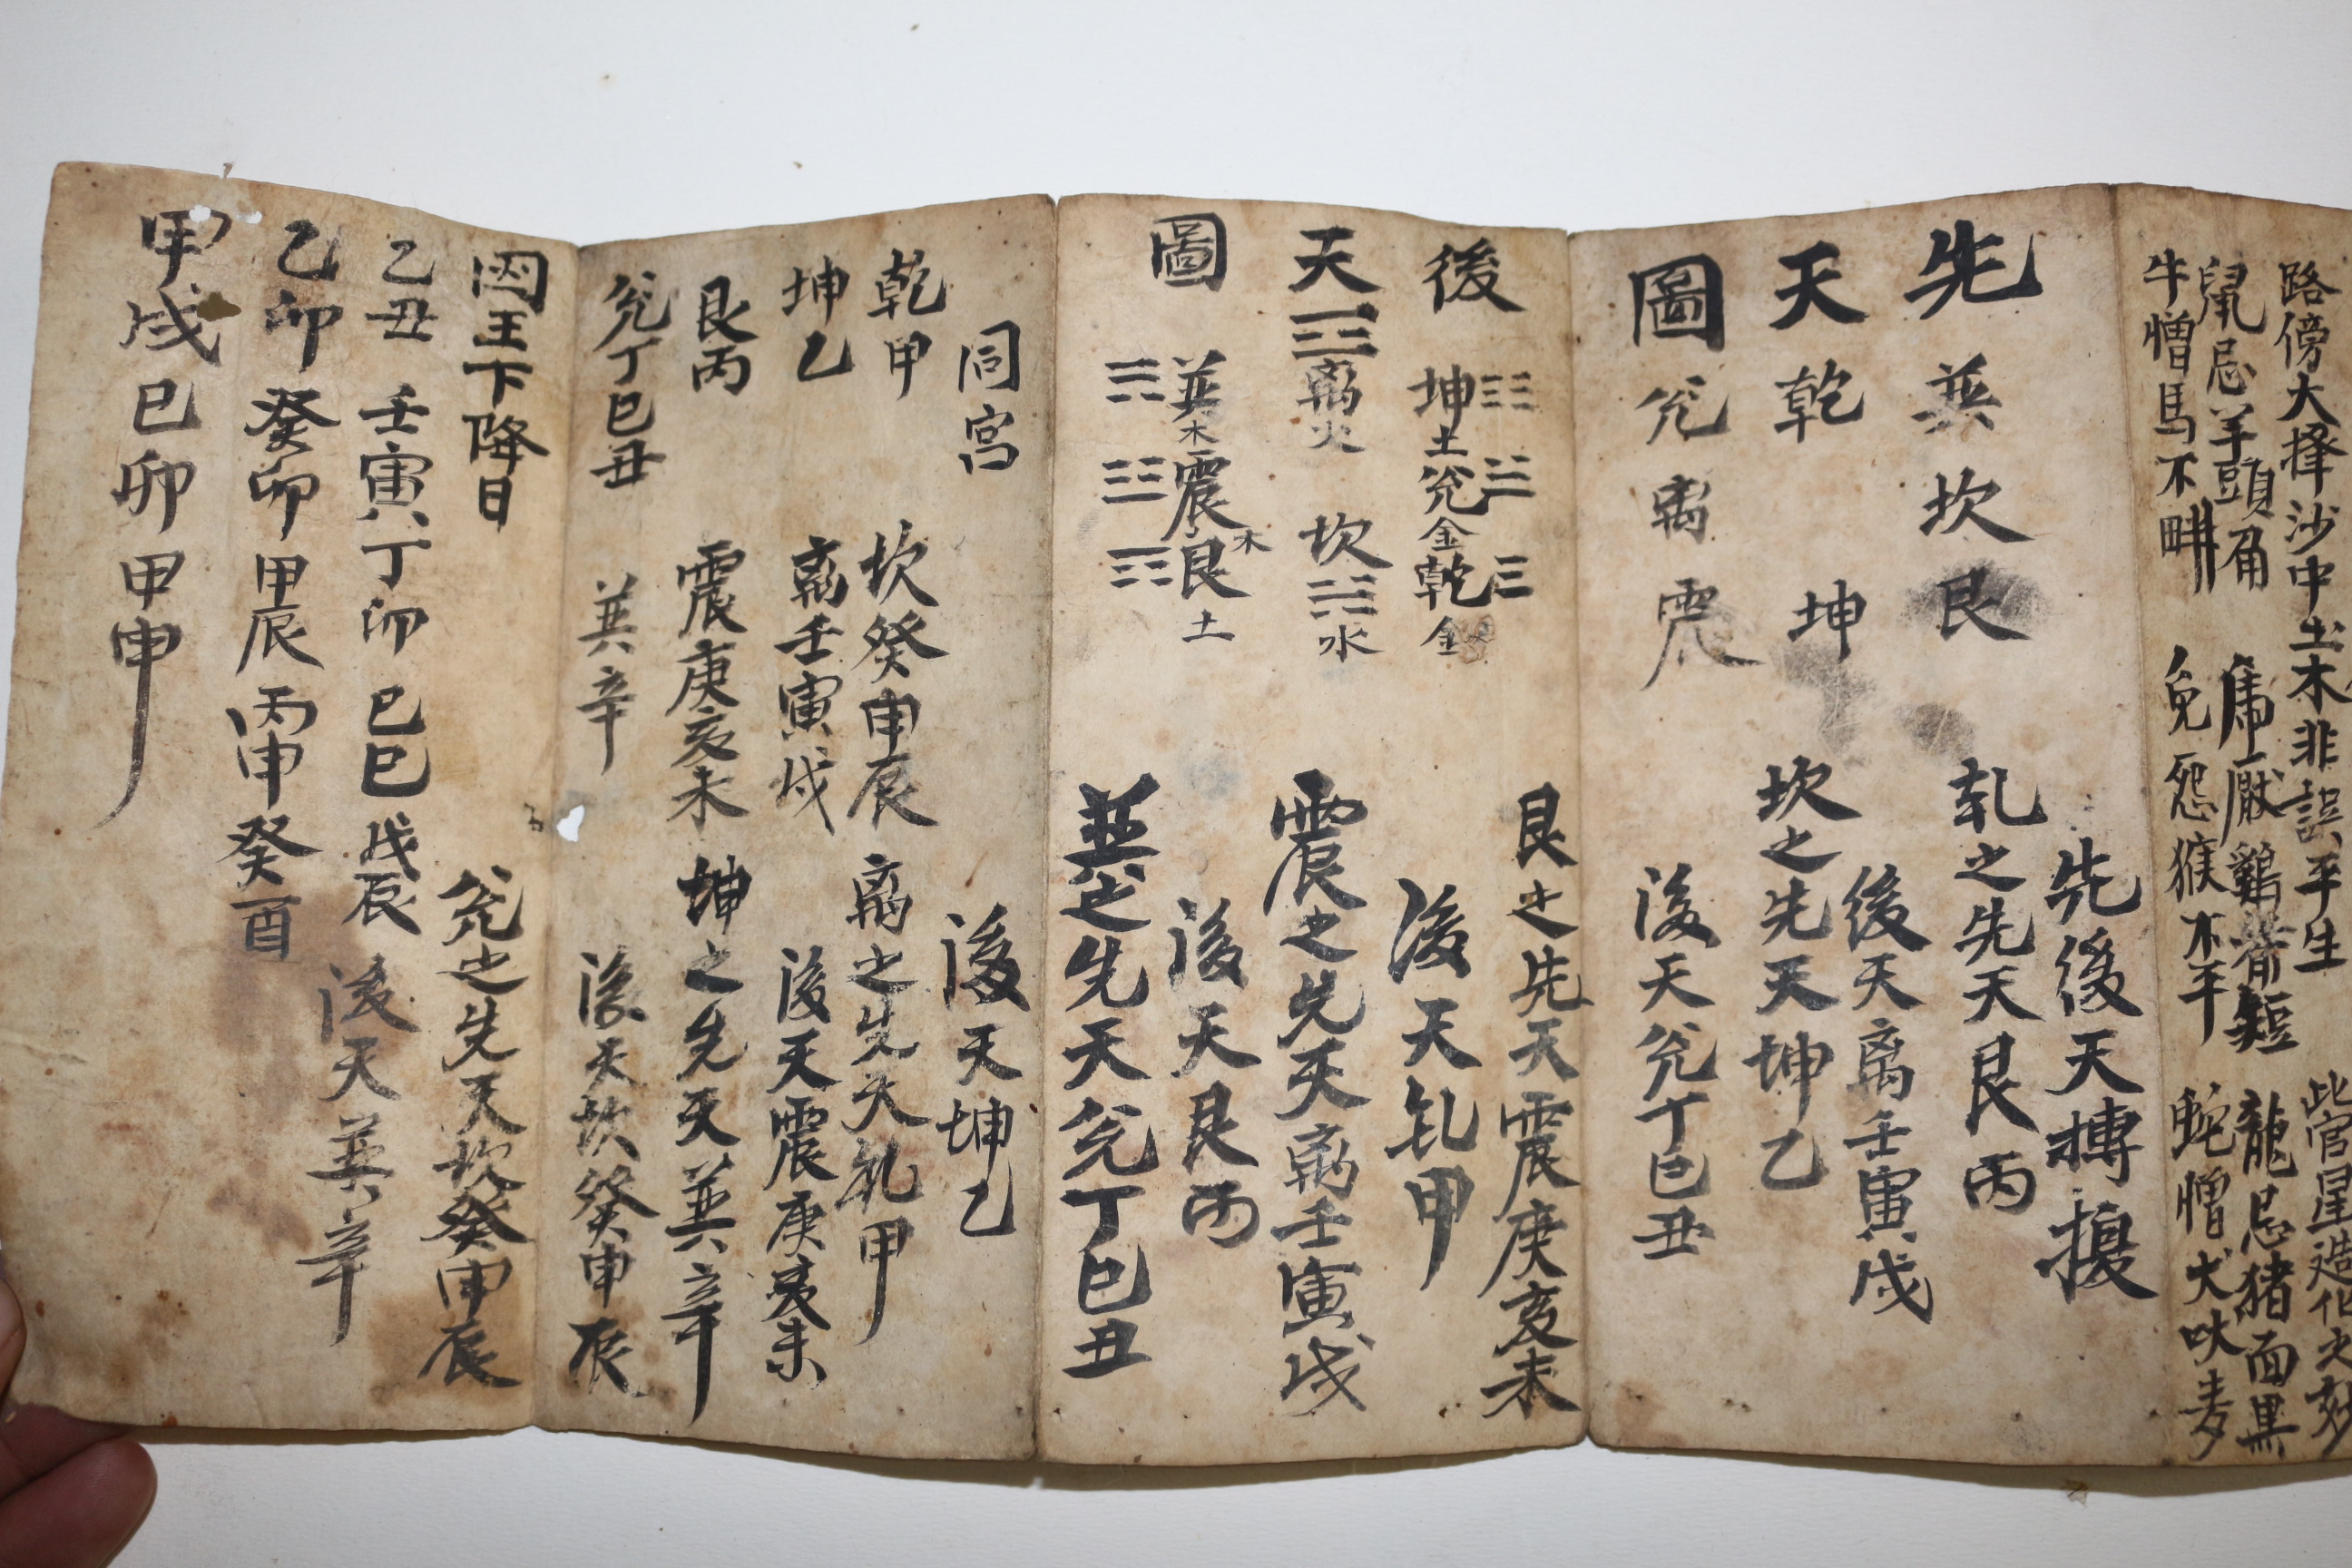 路傍大择沙中土木非誤平生
此官星造化之妙
鼠忌羊頭角
虎厭鷄嘴短
龍忌猪面黒
牛憎馬不畊
兔怨猴不平
蛇憎犬吠麦
先 巽坎艮
天 乾 坤
圖 兊离震
先後天摶擾
乾之先天艮丙
後天离壬寅戌
坎之先天坤乙
後天兊丁巳丑
後 坤土 兊金 乾金
天 离火 坎水
圖 巽木 震木 艮土
艮之先天震庚亥未
後天乹甲
震之先天离壬寅戌
後天艮丙
巽之先天兊丁巳丑
同宮
乾甲 坎癸申辰
坤乙 离壬寅戌
艮丙 震庚亥未
兊丁巳丑 巽辛
後天坤乙
离之先天乹甲
後天震庚亥未
坤之先天巽辛
後天坎癸申辰
図王下降日
乙丑 壬寅 丁卯 己巳 戊辰
乙卯 癸卯 甲辰 丙申 癸酉
甲戌 己卯 甲申
兊之先天坎癸申辰
後天巽辛